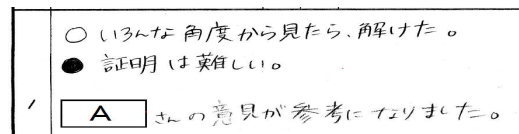 ○ いろんな角度から見たら、解けた。
● 証明は難しい。
1 A さんの意見が参考になりました。